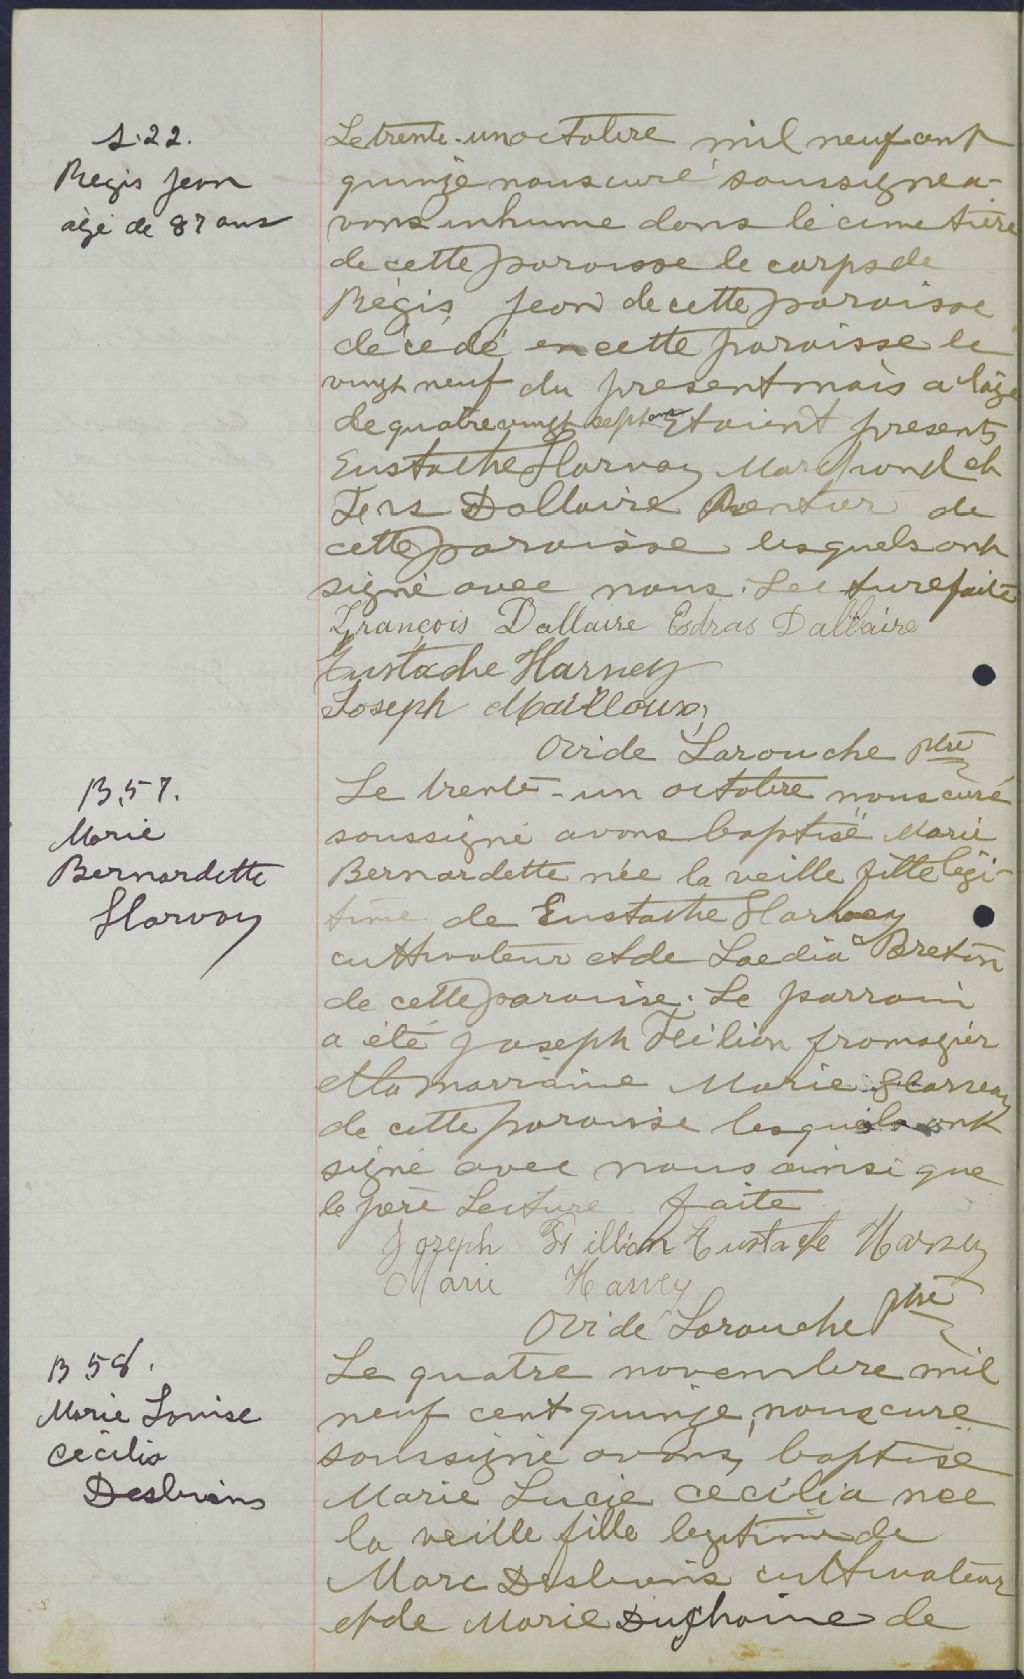 S.22.
Régis Jean
âgé de 87 ans
Le trente-un octobre mil neuf cent
quinze nous curé soussigné a-
vons inhumé dans le cimetière
de cette paroisse le corps de
Régis Jean de cette paroisse
décédé en cette paroisse le
vingt neuf du present mois a l'âge
de quatre vingt sept ans Etaient presents
Eustache Harvay et
Dallaire Rentier de
cette paroisse lesquels ont
signé avec nous. Lecture faite
François Dallaire Esdras Dallaire
Eustache Harvey
Joseph Mailloux,
Ovide Larouche ptre
B.57.
Marie
Bernardette
Harvay
Le trente-un octobre nous curé
soussigné avons baptisé Marie
Bernardette née la veille fille légi-
time de Eustache Harvey
cultivateur et de Laedia Breton
de cette paroisse. Le parrain
a été Joseph Filion fromagier
et la marraine Marie Harvay
de cette paroisse lesquels ont
signé avec nous ainsi que
le père Lecture faite
Joseph Fillion Eustache Harvey
Marie Harvey
Ovide Larouche ptre
B 58.
Marie Louise
Cécilia
Desbiens
Le quatre novembre mil
neuf cent quinze, nous curé
soussigné avons baptisé
Marie Lucie Cécilia née
la veille fille legitime de
Marc Desbiens cultivateur
et de Marie Duchaine de